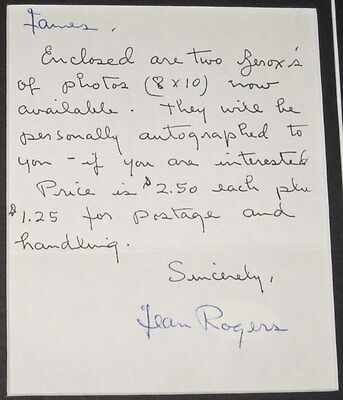 James,
Enclosed are two Zerox's
of photos (8 x 10) now
available. They will be
personally autographed to
you - if you are interested
Price is $2.50 each plu
$1.25 for postage and
handling.
Sincerely,
Jean Rogers